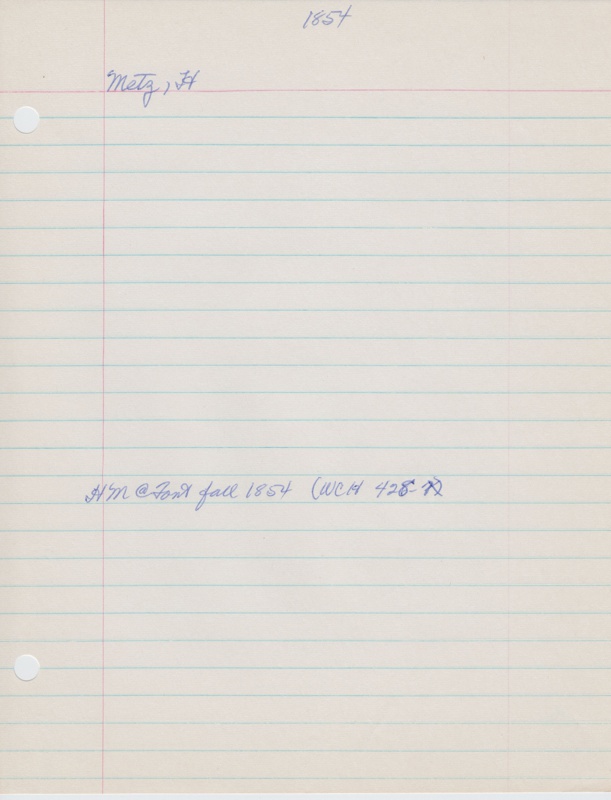 1854
Metz, H
HM @ Font fall 1854 (WCH 428-